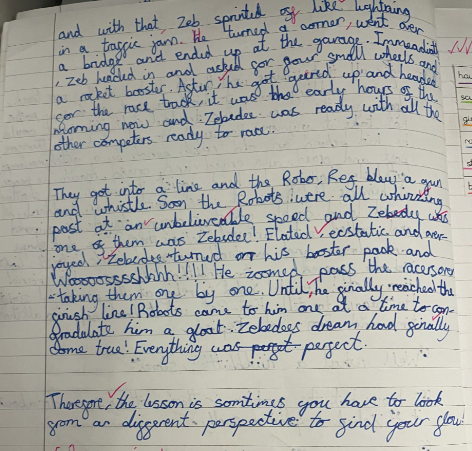 and with that, Zeb sprinted of like lightning
in a traffic jam. He turned a corner, went over
a bridge and ended up at the garage. Immeadiatly
, Zeb headed in and asked for four small wheels and
a rocket booster. After, he got geered up and headed
for the race track, it was the early hours of the
morning now and Zebedee was ready with all the
other competers ready to race.
They got into a line and the Robo, Ref blew a gun
and whistle. Soon the Robots were all whirzzing
past at an unbelieveable speed and Zebedee was
one of them was Zebedee! Elated, ecstatic and over-
joyed, Zebedee turned on his booster pack and
Wooooosssshhhh!!!! He zoomed pass the racersore
taking them one by one. Until, he finally reached the
finish line! Robots came to him one at a time to con-
gradalate him a gloat. Zebedees dream had finally
come true! Everything was perfet perfect.
Therefore, the lesson is somtimes you have to look
from an different perspective to find your flow!